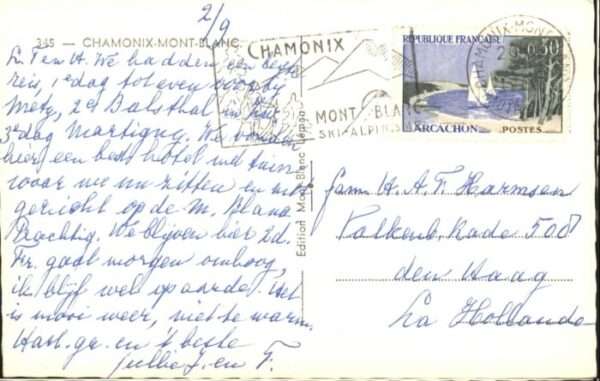 2/9
345 — CHAMONIX-MONT-BLANC
L. T en H. We hadden een beste
reis, 1e dag tot even voorby
Metz, 2e Balsthal in
3e dag Martigny. We vonden
hier een best hotel met tuin
waar we nu zitten en uit
gezicht op de M. Blanc
Prachtig. We blijven hier 2d.
Fr. gaat morgen omhoog,
ik blijf wel op aarde. Het
is mooi weer, niet te warm.
Hart. gr. en 't beste
jullie J. en F.
Edition Mont-Blanc
CHAMONIX
MONT-BLANC
SKI-ALPINISME
CHAMONIX-MONT-BLANC
RÉPUBLIQUE FRANÇAISE
0,30
ARCACHON POSTES
Fam. H. A. F. Harmsen
Valkenb. Kade 500
den Haag
La Hollande